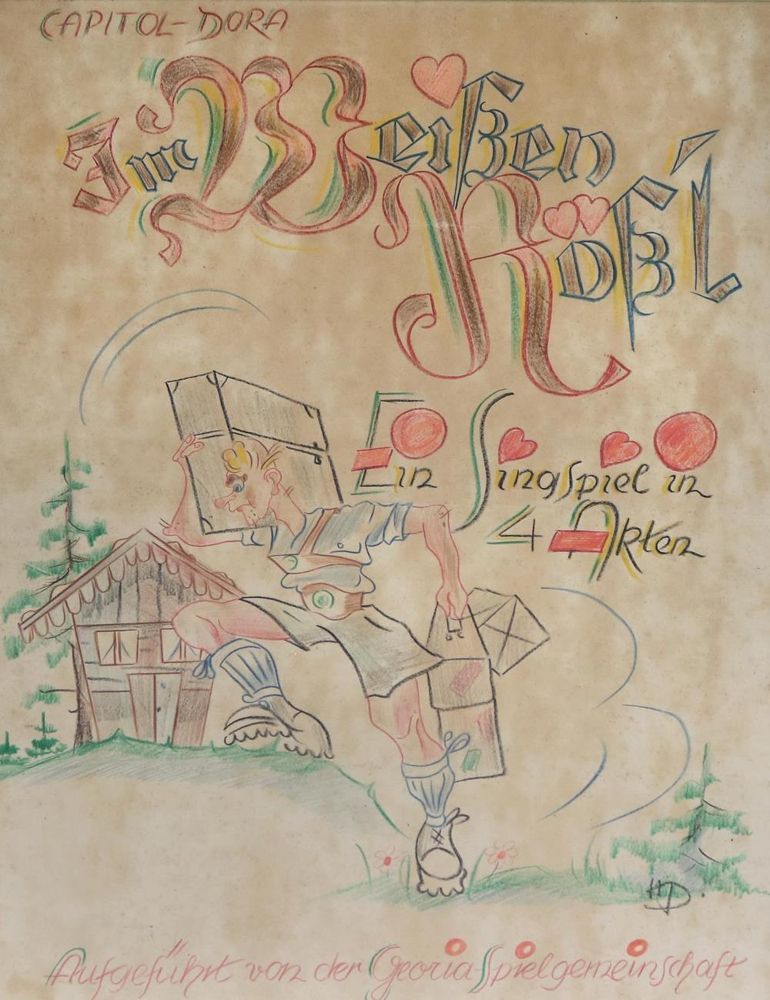 CAPITOL-DORA
Im Weißen
Rößl
Ein Singspiel in
4 Akten
HD
Aufgeführt von der Georia-Spielgemeinschaft